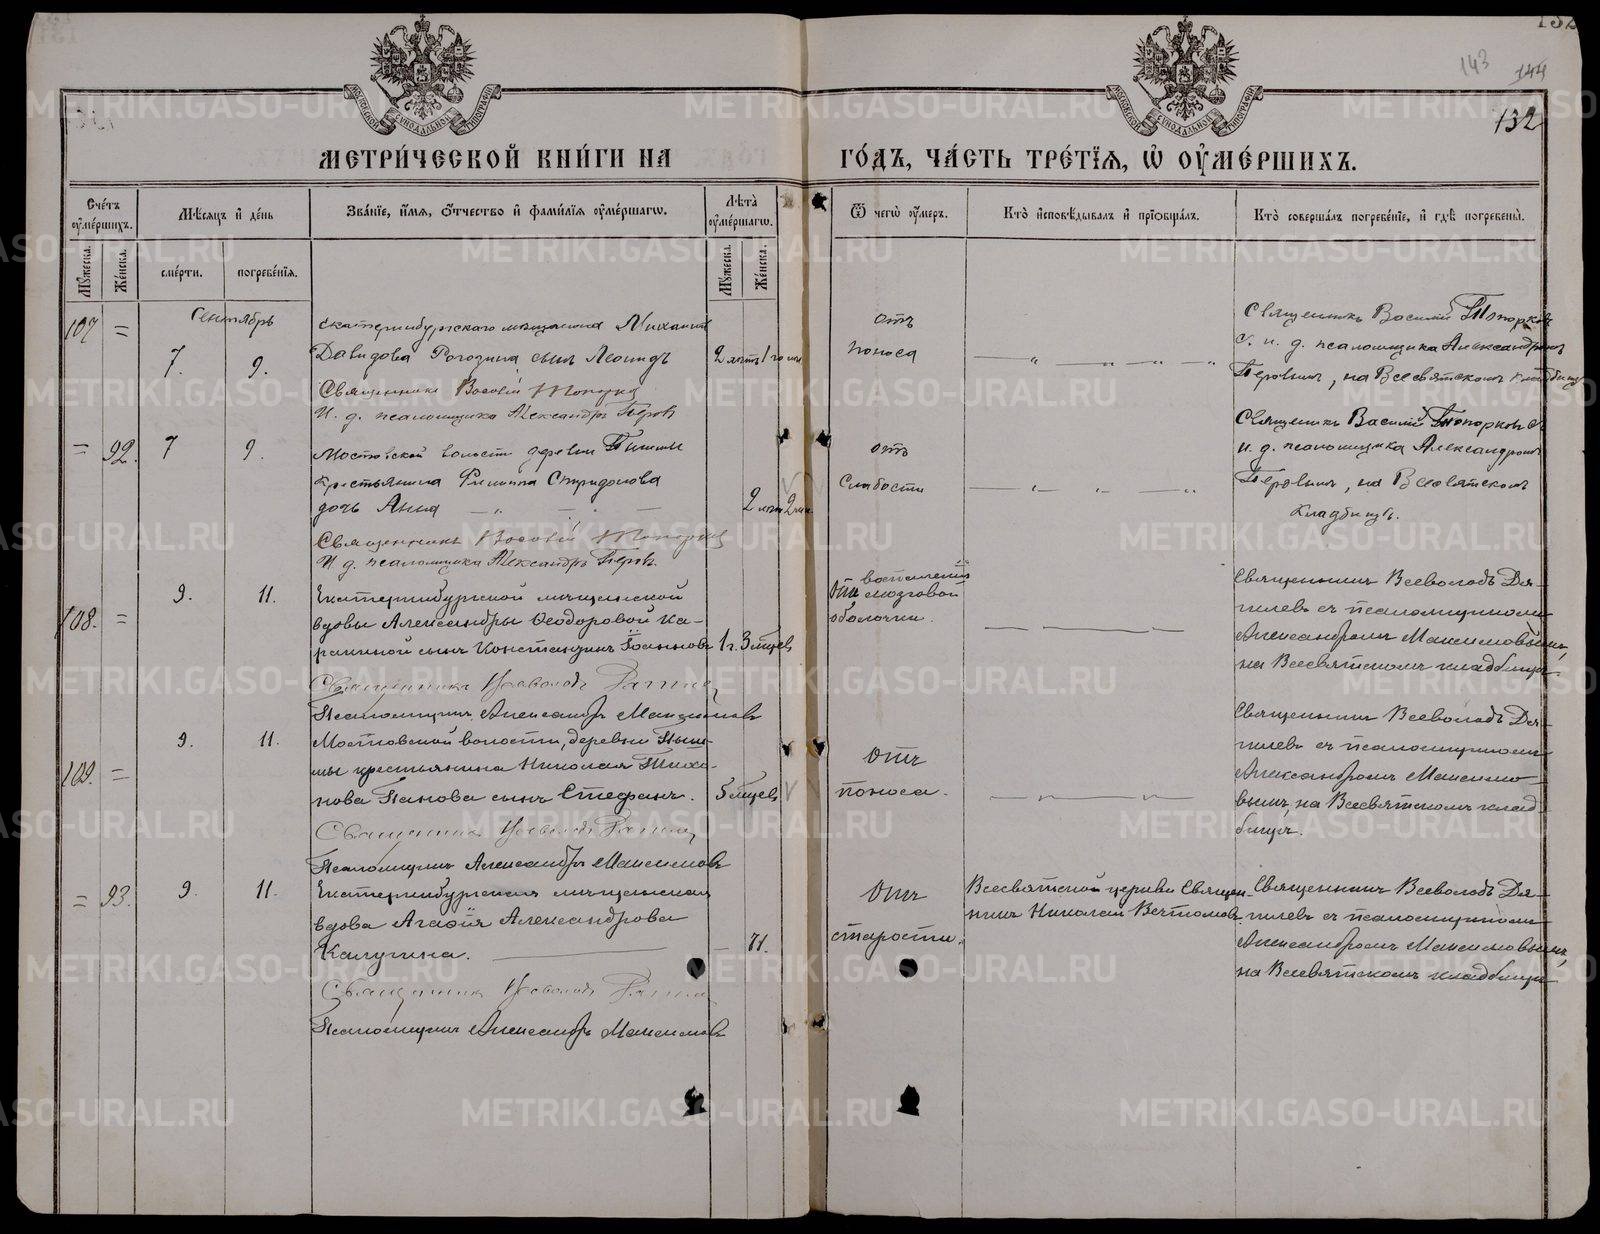 132
143 144
132
МЕТРИ́ЧЕСКОЙ КНИ́ГИ НА
ГО́ДЪ, ЧА́СТЬ ТРЕ́ТІѦ, Ѡ ОУМЕ́РШИХЪ.
Сче́тъ оуме́ршихъ.
Мѣсяцъ и де́нь
Зва́ніе, и́мя, о́тчество и фами́лія оуме́ршагѡ.
Лѣта̀ оуме́ршагѡ.
Ѿ чегѡ̀ оу́меръ.
Кто̀ исповѣ́дывалъ и пріѡбща́лъ.
Кто̀ соверша́лъ погребе́ніе, и гдѣ̀ погребены̀.
Му́жеска.
Же́нска.
сме́рти.
погребе́нія.
Му́жеска.
Же́нска.
Сентябрь
107 =
7. 9.
Екатеринбургскаго мещанина Михаила
Давидова Рогозина сынъ Леонидъ
Священникъ Василій Топорковъ
И. д. псаломщика Александръ Перовъ
2 лѣтъ
отъ
поноса
Священникъ Василій Топорковъ
с. и. д. псаломщика Александромъ
Перовымъ, на Всесвятскомъ кладбищѣ
= 92.
7 9.
Мостовской волости деревни Пышмы
крестьянина Филиппа Спиридонова
дочь Анна
Священникъ Василій Топорковъ
И. д. псаломщика Александръ Перовъ.
2 лѣтъ 2 мѣс.
отъ
Слабости
Священникъ Василій Топорковъ съ
и. д. псаломщика Александромъ
Перовымъ, на Всесвятскомъ
кладбищѣ.
108. =
9. 11.
Екатеринбургской мѣщанской
вдовы Александры Ѳеодоровой Ка-
сынъ Константинъ Іоанновъ
Священникъ Всеволодъ
Псаломщикъ Александръ Максимовъ
1 г. 3 мѣсец.
Отъ воспаленія
мозговой
оболочки.
Священникъ Всеволодъ
съ псаломщикомъ
Александромъ Максимовымъ,
на Всесвятскомъ кладбищѣ
109. =
9. 11.
Мостовской волости, деревни Пыш-
мы крестьянина Николая Тихо-
нова Панова сынъ Стефанъ.
Священникъ Всеволодъ
Псаломщикъ Александръ Максимовъ
5 мѣсец.
Отъ
поноса.
Священникъ Всеволодъ
съ псаломщикомъ
Александромъ Максимо-
вымъ, на Всесвятскомъ клад-
бищѣ.
= 93.
9. 11.
Екатеринбургская мѣщанская
вдова Агафія Александрова
Калугина.
Священникъ Всеволодъ
Псаломщикъ Александръ Максимовъ
71.
Отъ
старости.
Всесвятской церкви Священ-
никъ Николай
Священникъ Всеволодъ
съ псаломщикомъ
Александромъ Максимовымъ,
на Всесвятскомъ кладбищѣ
METRIKI.GASO-URAL.RU